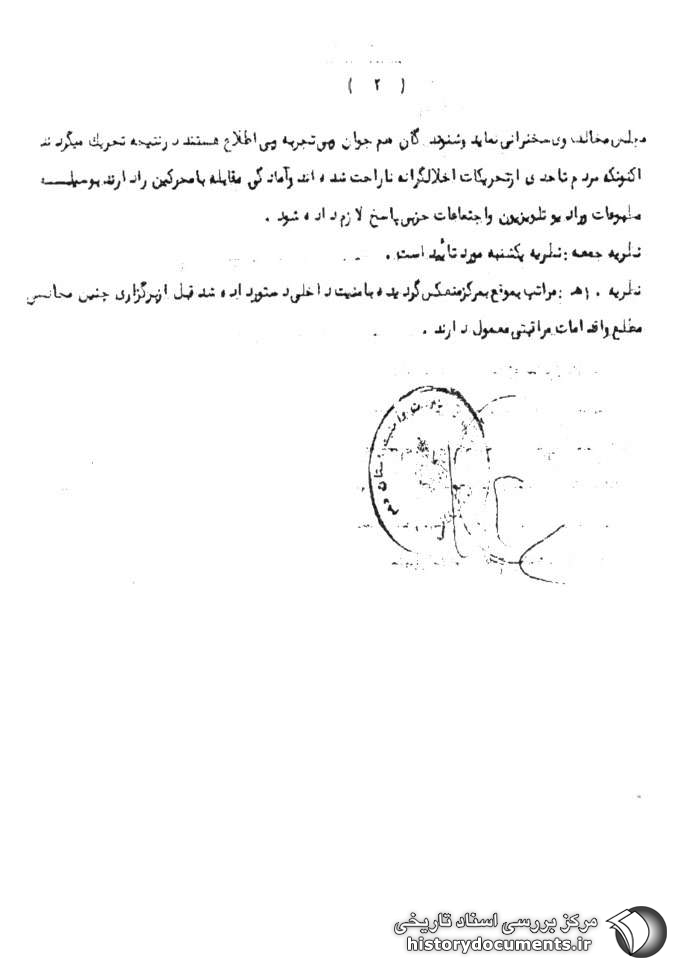 ( ۲ )
مجلس مخالف وی سخنرانی نماید و شنوندگان هم جوان وبی تجربه وبی اطلاع هستند در نتیجه تحریک میگردند
اکنونکه مردم تاحدی ازتحریکات اخلالگرانه ناراحت شده اند وآمادگی مقابله بامحرکین را دارند بوسیلسه
مطبوعات ورادیو تلویزیون واجتماعات حزبی پاسخ لازم داده شود .
نظریه جمعه : نظریه یکشنبه مورد تأیید است .
نظریه ۱۰ هـ : مراتب بموقع بمرکز منعکس گردیده بامنیت داخلی دستور داده شد قبل ازبرگزاری چنین مجالسی
مطلع واقدامات مراقبتی معمول دارند .
مرکز بررسی اسناد تاریخی
historydocuments.ir